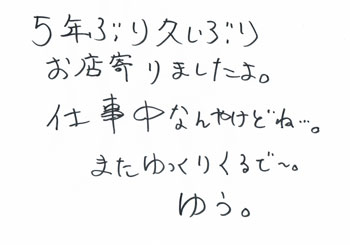 5年ぶり久しぶり
お店寄りましたよ。
仕事中なんやけどね…。
またゆっくりくるで〜。
ゆう。